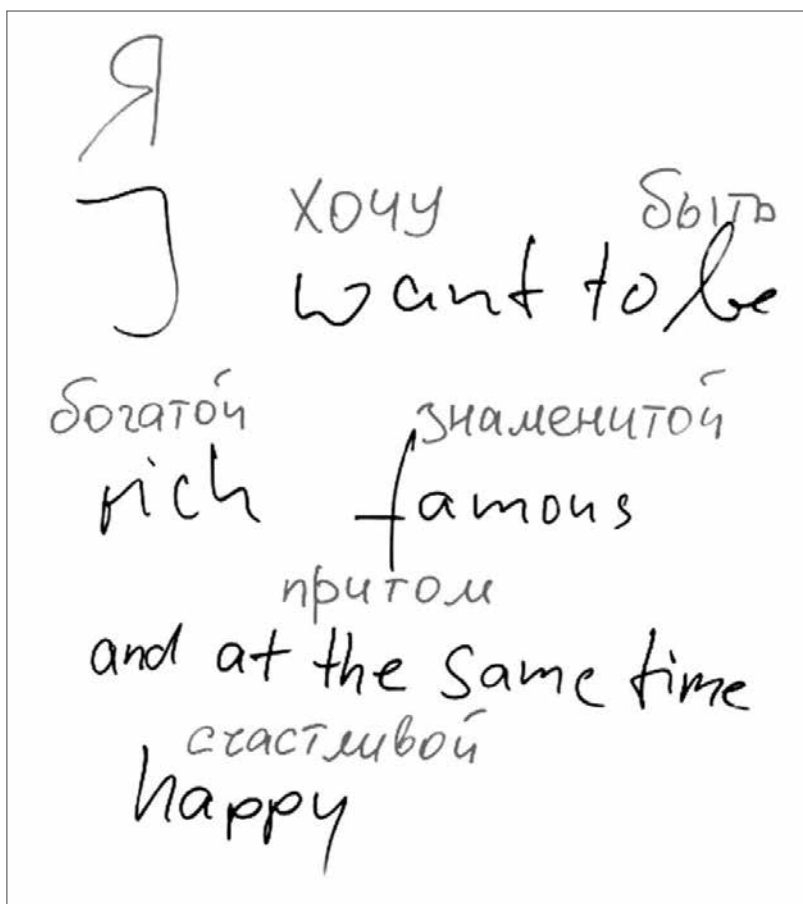 Я
I
хочу быть
want to be
богатой знаменитой
rich famous
притом
and at the same time
счастливой
happy